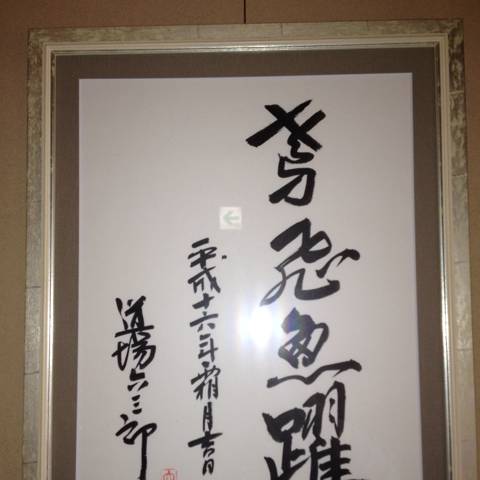 鳶飛魚躍
平成十六年霜月吉日
道場六三郎